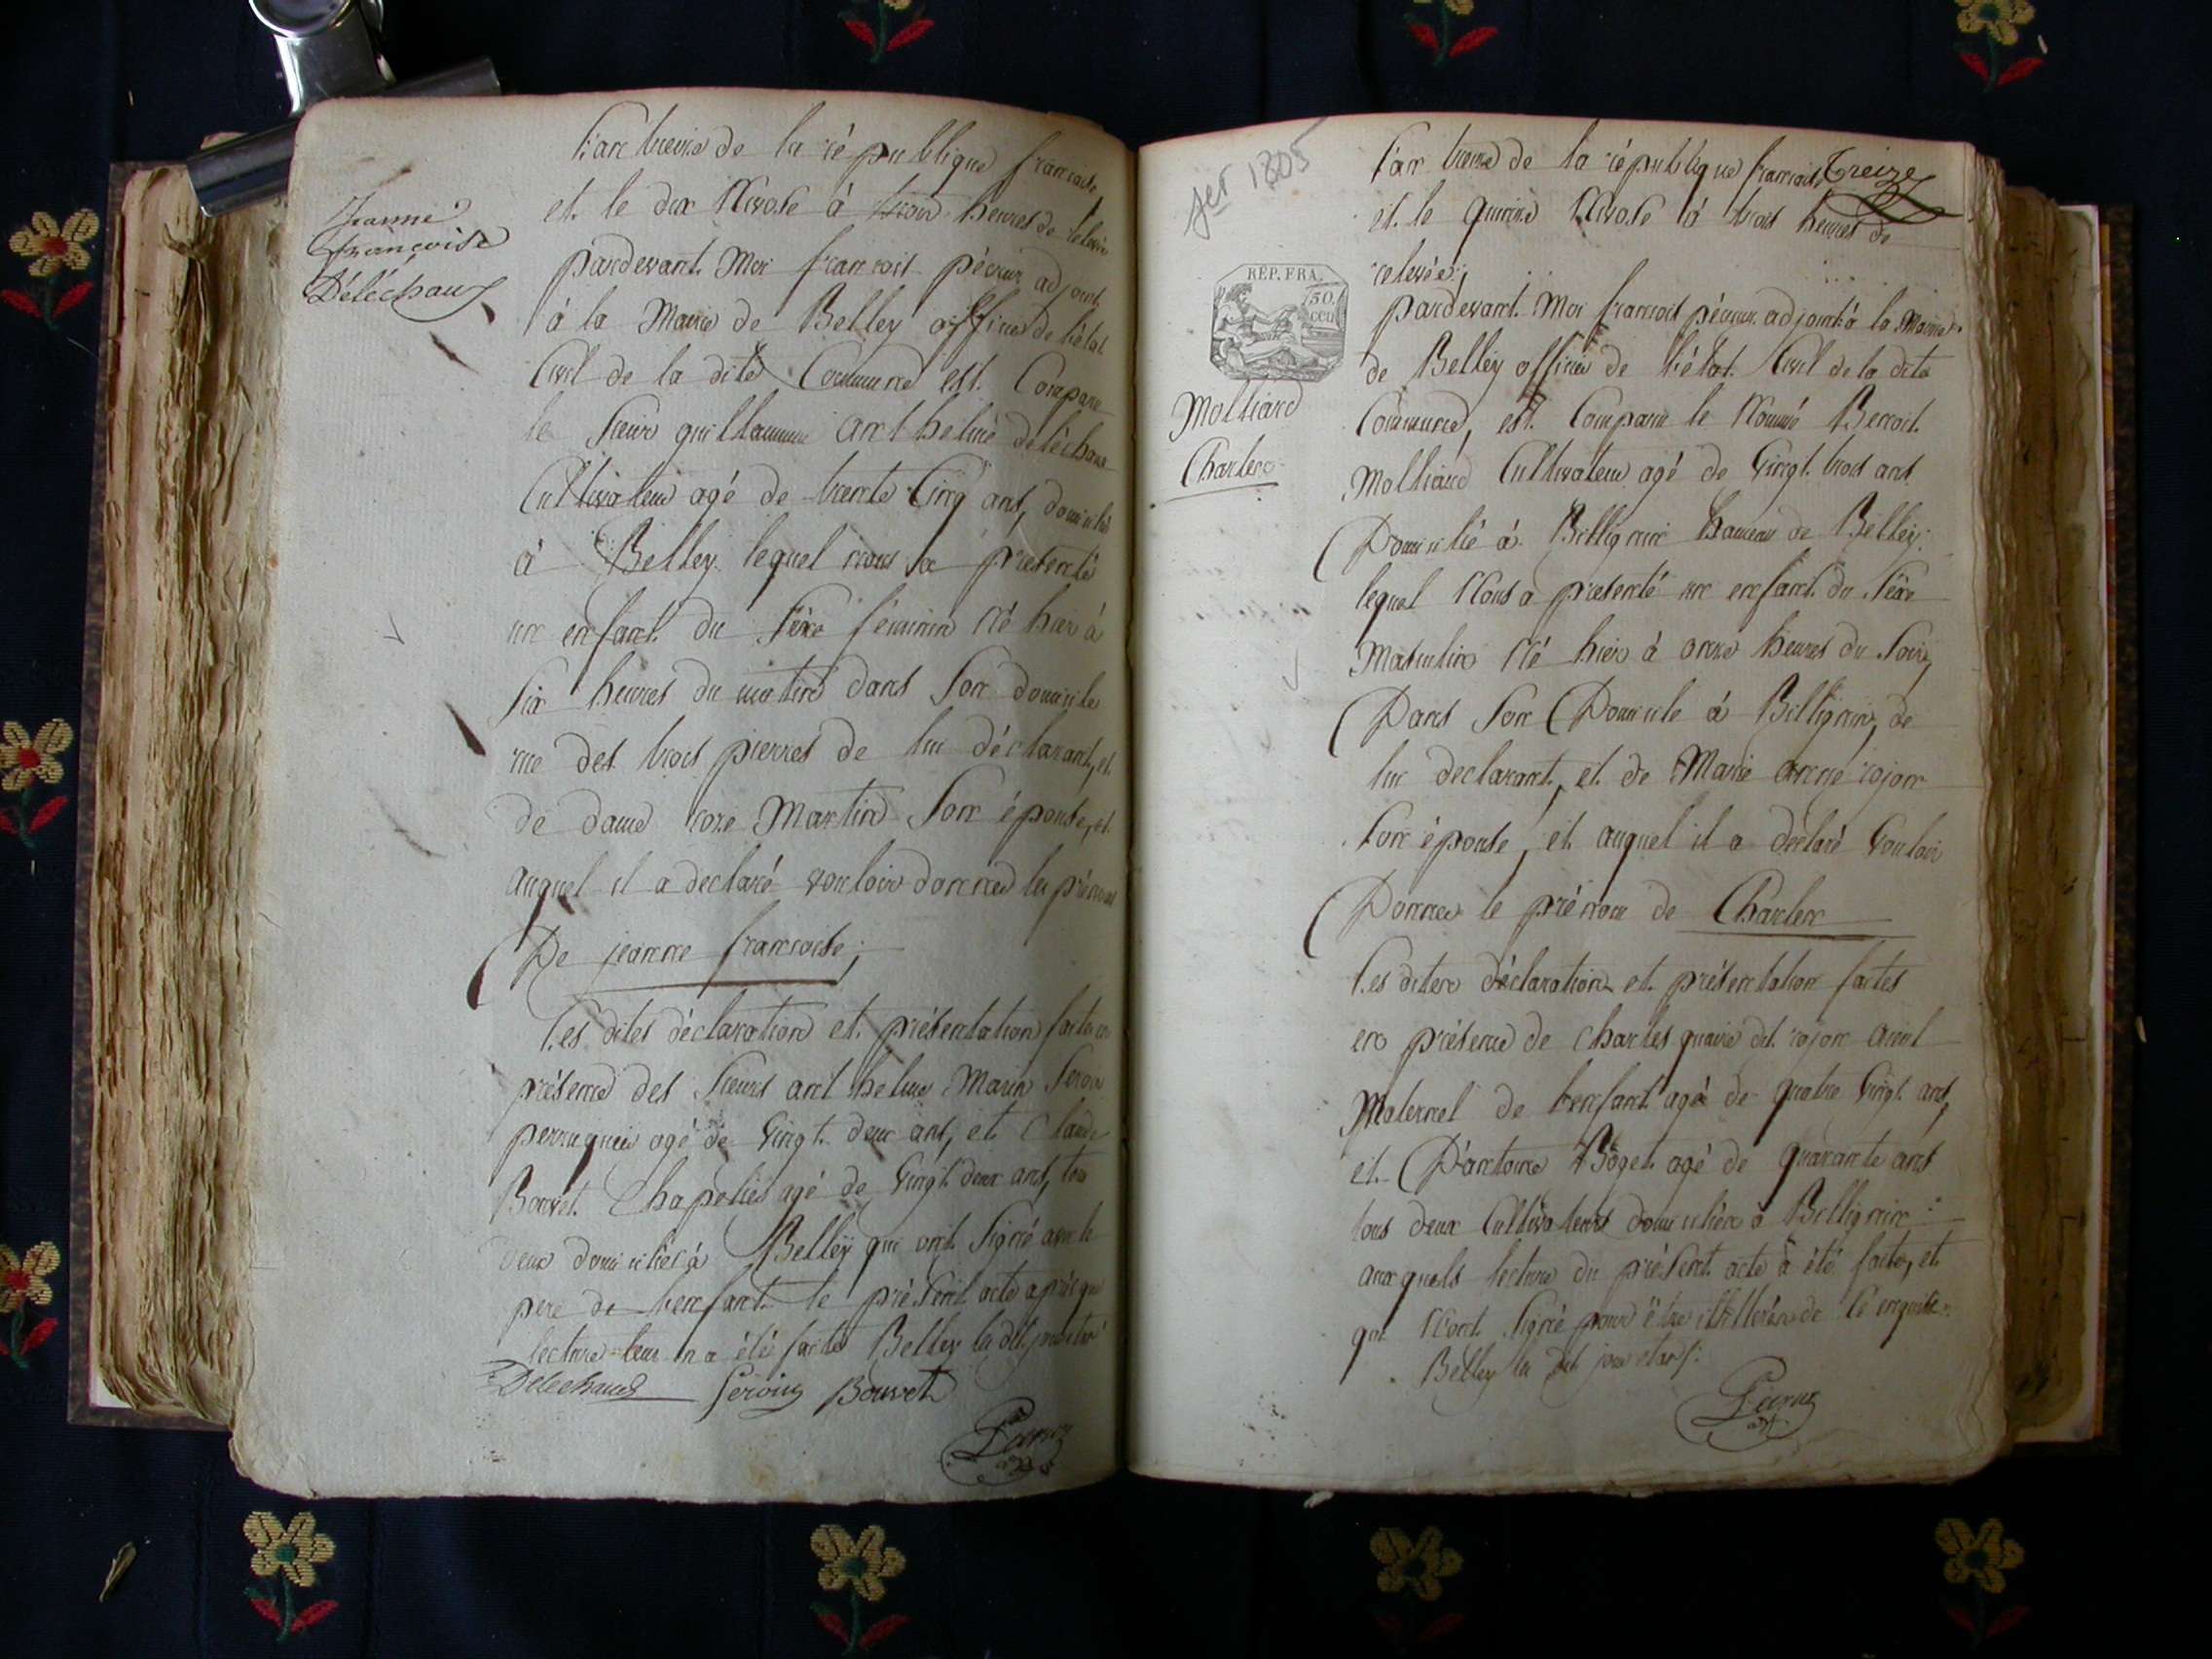 Jeanne
françoise
Déléchaux
L'an treize de la république française
et le dix Nivose à trois heures de relevée
pardevant Moi françois péeur adjoint
à la Mairie de Belley officier de l'état
Civil de la dite Commune est Comparu
le Sieur guillaume anthelme déléchaux
Cultivateur agé de trente Cinq ans, domicilié
à Belley lequel nous a presenté
un enfant du Sèxe féminin Né hier à
six heures du matin dans Son domicile
rue des trois pierres de lui déclarant, et
de dame roze Martin Son épouse, et
auquel il a declaré vouloir donner les prénoms
De jeanne francoise;
les dites déclaration et présentation faites en
présence des Sieurs anthelme Marin
perruquier agé de Vingt deux ans, et Claude
Bouvet Chapelier agé de Vingt deux ans, tous
deux domiciliés à Belley qui ont Signé avec le
pere de l'enfant le présent acte après que
lecture leur en a été faite Belley les dits jour et an
Délechaux Bouvet
jer 1805
Treize
REP. FRA.
50.
cen
Molliand
Charles
l'an treize de la république francaise
et le quinze Nivose à trois heures de
relevée;
pardevant Moi francois péeur adjoint à la Mairie
de Belley officier de l'état Civil de la dite
Commune, est Comparu le Nommé Benoit
Molliand Cultivateur agé de Vingt trois ans
Domicilié à Billignin hameau de Belley
lequel Nous a presenté un enfant du Sèxe
Masculin Né hier à onze heures du Soir,
Dans Son Domicile à Billignin, de
lui declarant, et de Marie anne rojon
Son épouse, et auquel il a déclaré Vouloir
Donner le prénom de Charles
les dites déclaration et présentation faites
en présence de Charles dit rojon aieul
Maternel de l'enfant agé de quatre Vingt ans,
et D'antoine Boget agé de quarante ans
tous deux Cultivateurs domiciliés à Billignin
auxquels lecture du présent acte a été faite, et
qui N'ont Signé pour être illitérés de Ce enquis
Belley les dits jour et an